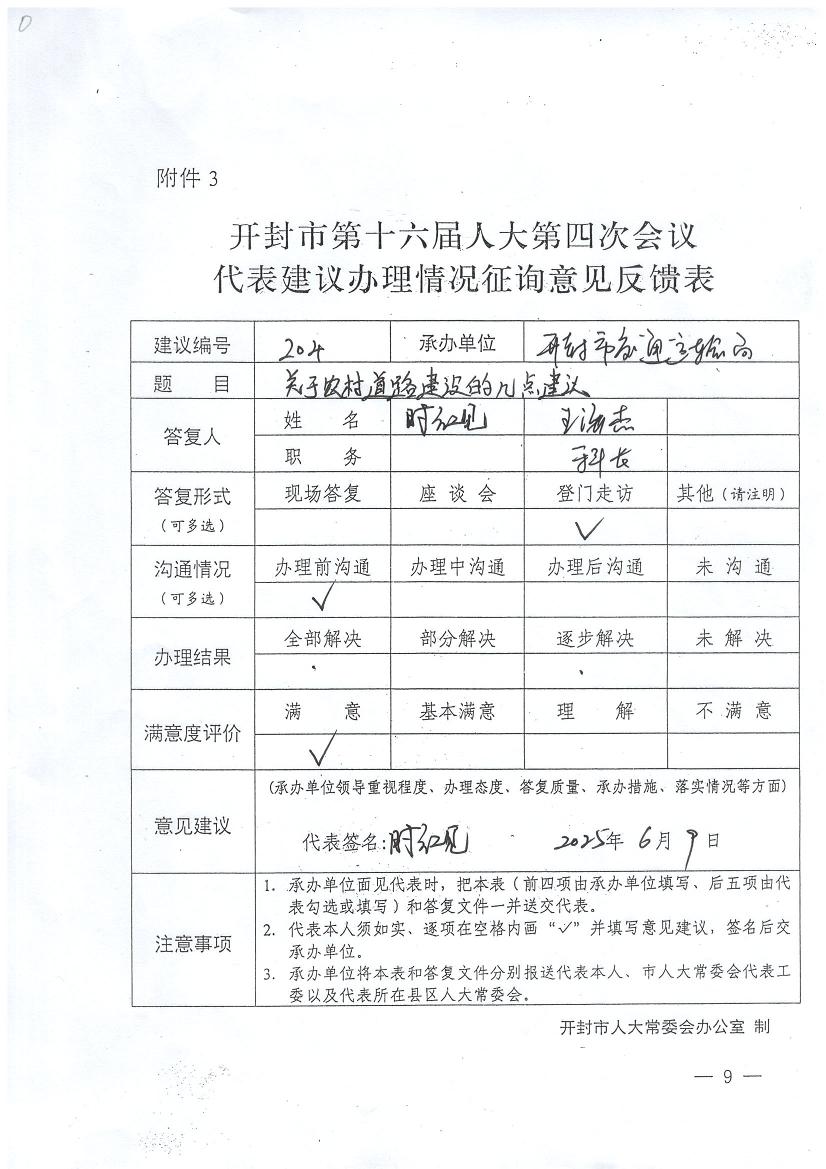 附件 3
开封市第十六届人大第四次会议
代表建议办理情况征询意见反馈表
建议编号 204 承办单位 开封市交通运输局
题 目 关于农村道路建设的几点建议
答复人 姓 名 时红见 王海杰
职 务 科长
答复形式 (可多选) 现场答复 座谈会 登门走访 其他(请注明)
✓
沟通情况 (可多选) 办理前沟通 办理中沟通 办理后沟通 未沟通
✓
办理结果 全部解决 部分解决 逐步解决 未解决
满意度评价 满 意 基本满意 理 解 不满意
✓
意见建议 (承办单位领导重视程度、办理态度、答复质量、承办措施、落实情况等方面)
代表签名:时红见 2025年 6月 9日
注意事项
1. 承办单位面见代表时，把本表(前四项由承办单位填写、后五项由代
表勾选或填写)和答复文件一并送交代表。
2. 代表本人须如实、逐项在空格内画“✓”并填写意见建议，签名后交
承办单位。
3. 承办单位将本表和答复文件分别报送代表本人、市人大常委会代表工
委以及代表所在县区人大常委会。
开封市人大常委会办公室 制
— 9 —